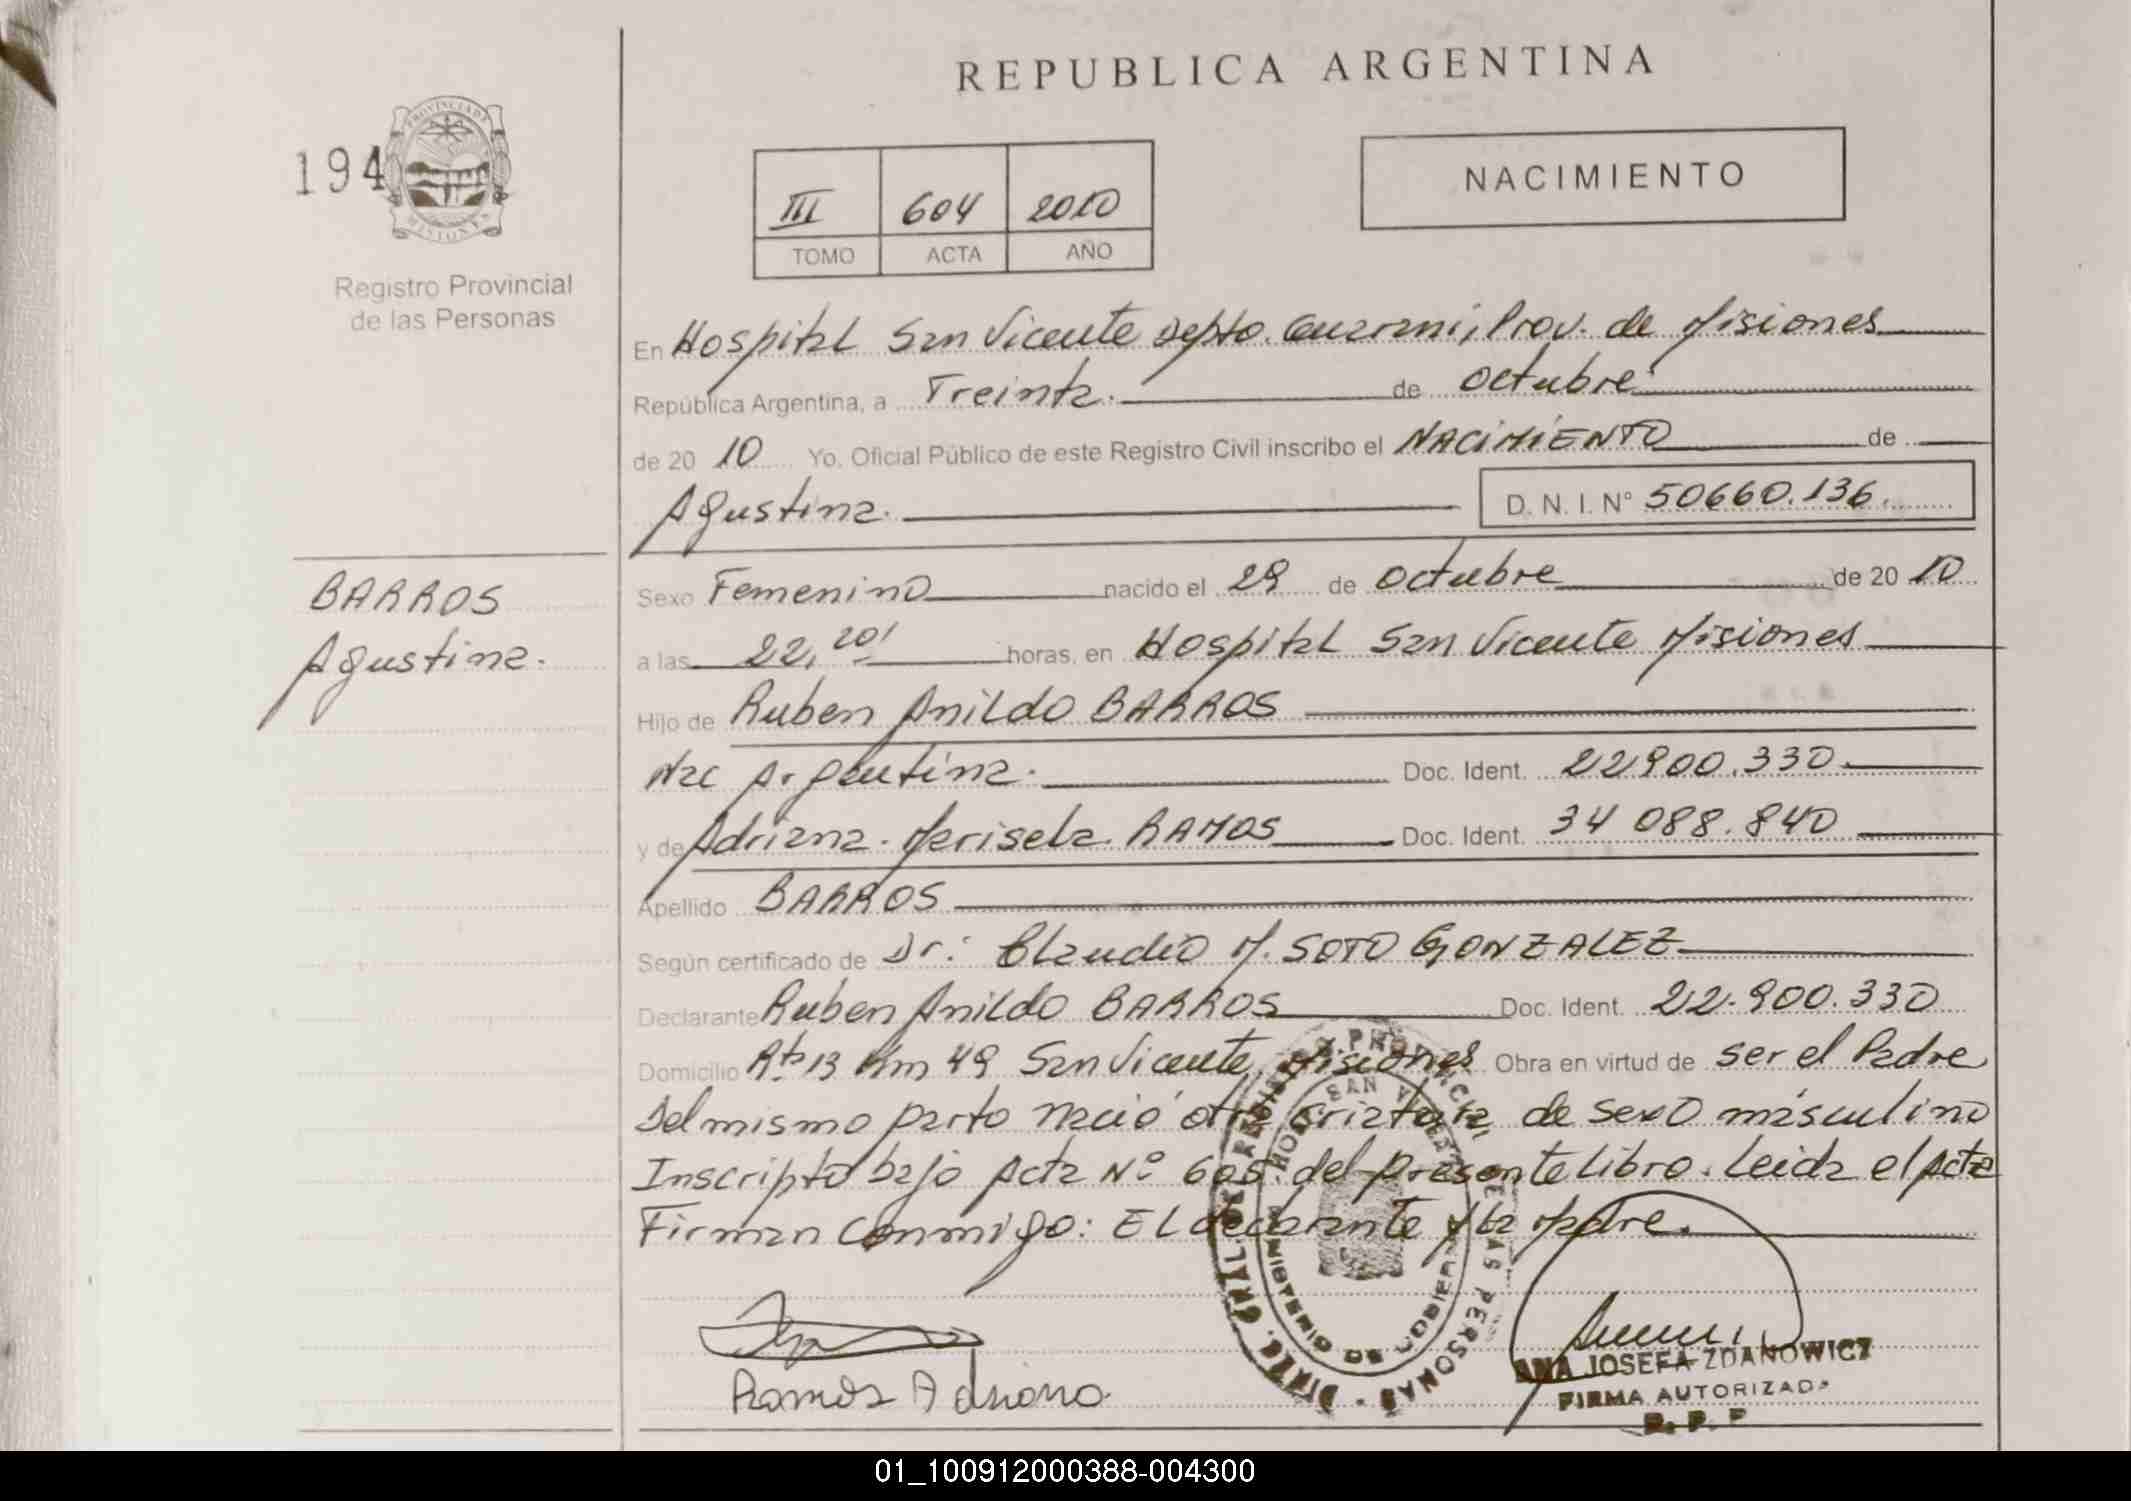 REPUBLICA ARGENTINA
194
PROVINCIA DE MISIONES
Registro Provincial
de las Personas
III 604 2010
TOMO ACTA AÑO
NACIMIENTO
En Hospital San Vicente Depto. Guarani, Prov. de Misiones
República Argentina, a Treinta. de octubre
de 20 10 Yo, Oficial Público de este Registro Civil inscribo el NACIMIENTO de
Agustina. D. N. I. N° 50660.136.
BARROS
Agustina.
Sexo Femenino nacido el 29 de octubre de 20 10
a las 22,20' horas, en Hospital San Vicente Misiones
Hijo de Ruben Anildo BARROS
Nac Argentina. Doc. Ident. 22900.330
y de Adriana. Marisela. RAMOS Doc. Ident. 34 088.840
Apellido BARROS
Según certificado de Dr: Claudio M. SOTO GONZALEZ
Declarante Ruben Anildo BARROS Doc. Ident. 22.900.330
Domicilio Rta 13 Km 49 San Vicente, Misiones Obra en virtud de ser el Padre
Del mismo parto nació otra criatura de sexo másculino
Inscripto bajo Acta N° 605. del presente libro. Leida el Acta
Firman Conmigo: El declarante y la Madre.
Ramos Adriana.
ANA JOSEFA ZDANOWICZ
FIRMA AUTORIZADA
R. P. P
01_100912000388-004300